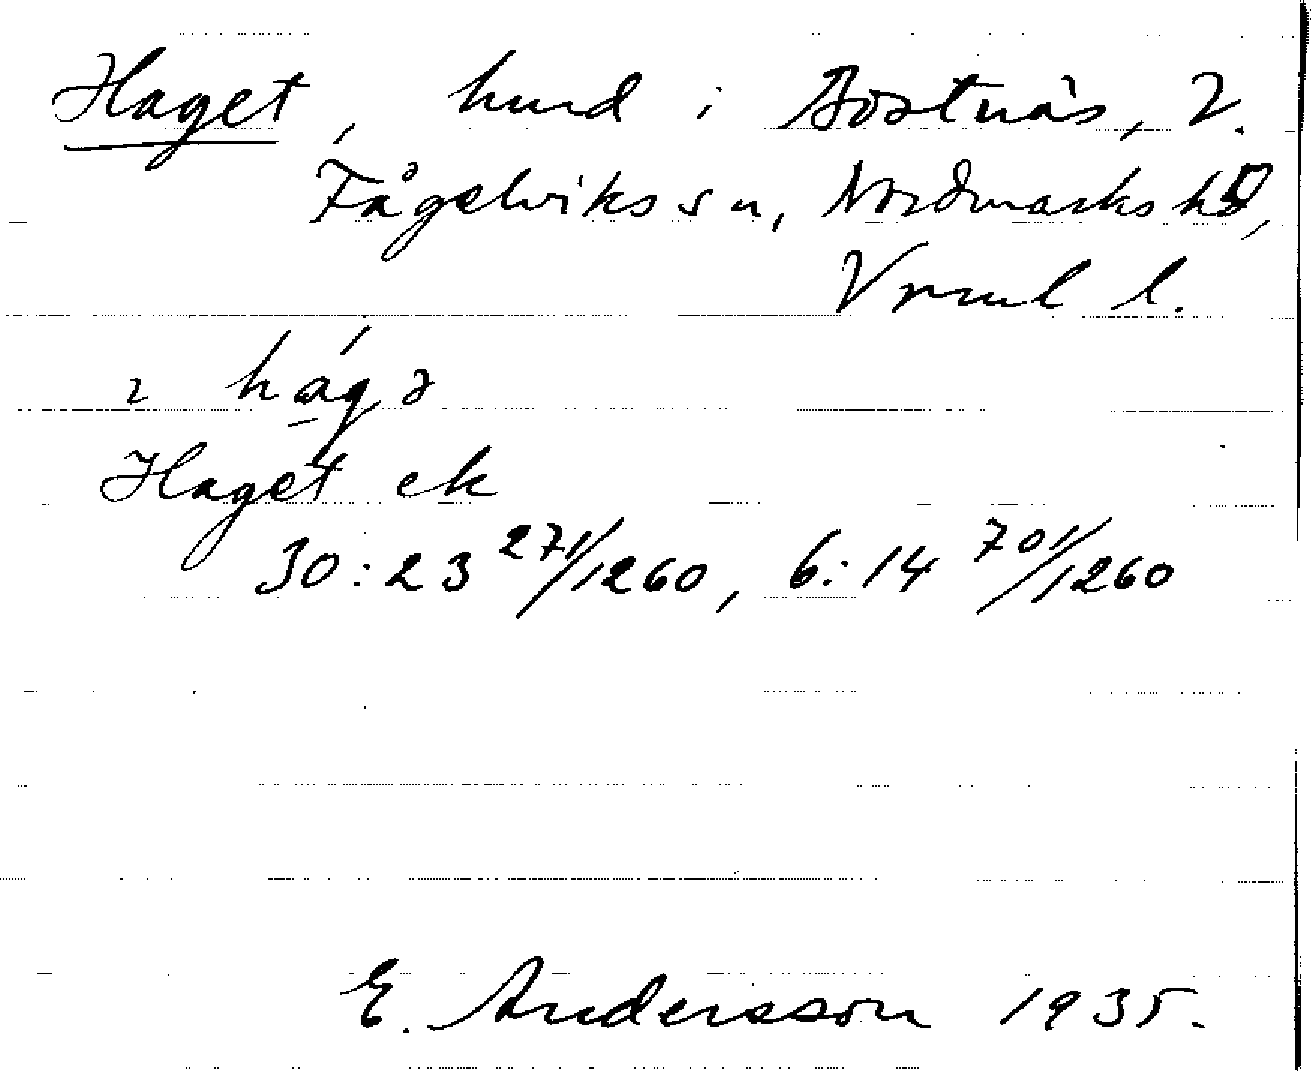 Haget, hmd i Bostnäs, V.
Fågelviks sn, Nordmarks hd,
Vrml l.
2 hágə
Haget ek
30:23 271/1260, 6:14 701/1260
E. Andersson 1935.